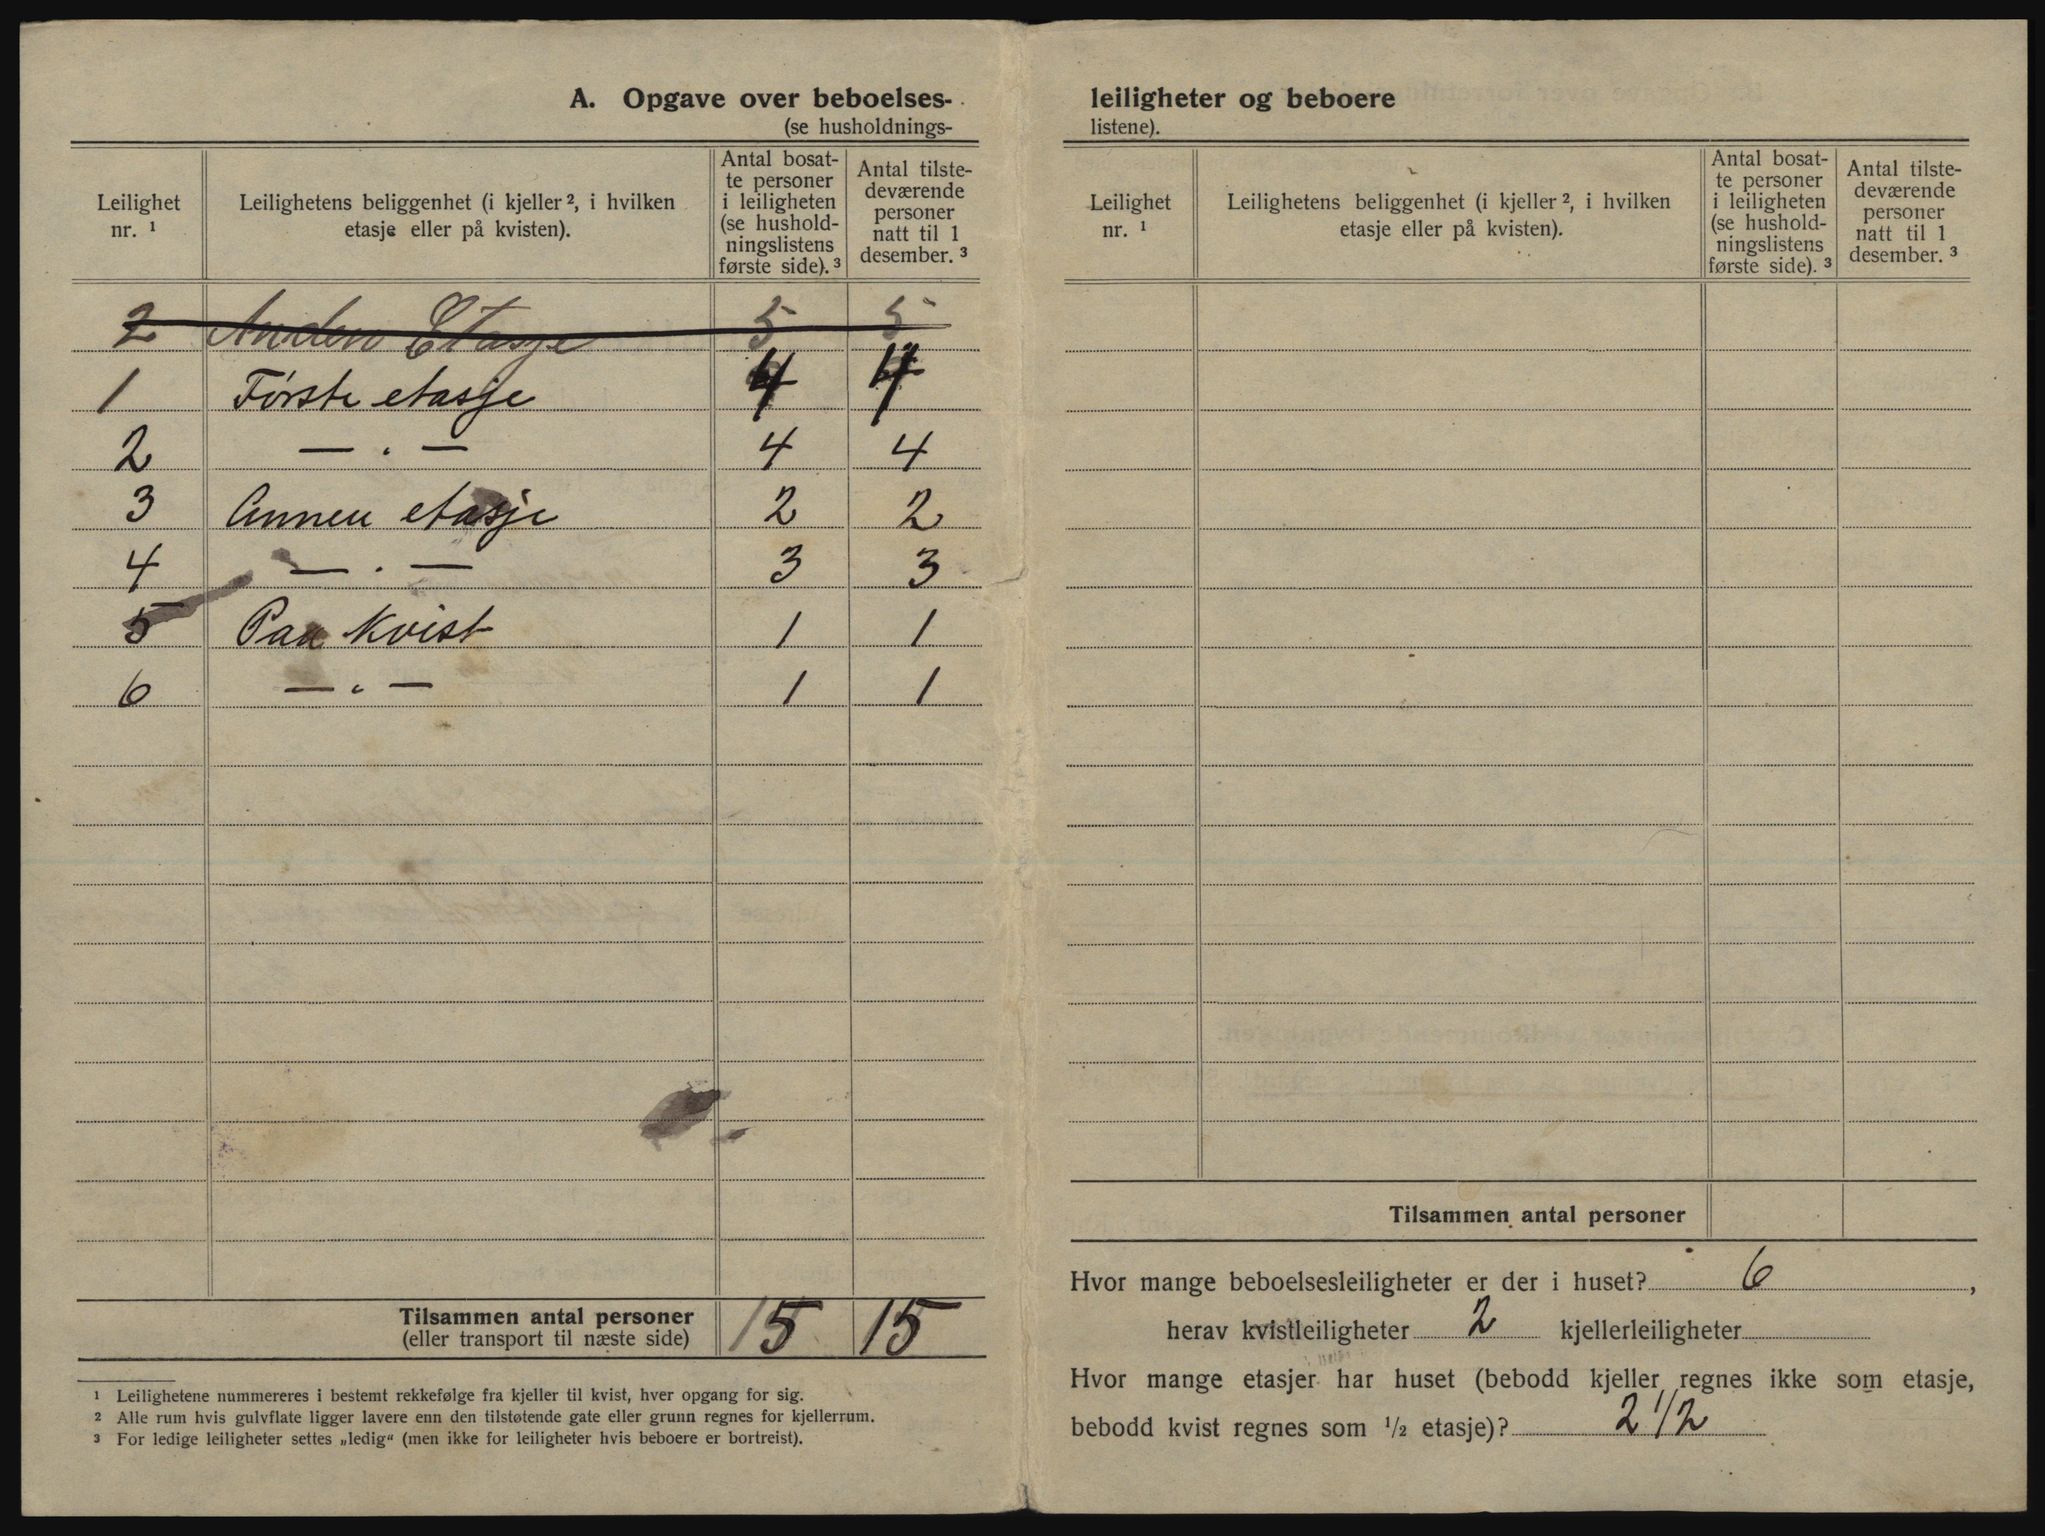 A. Opgave over beboelses-
(se husholdnings-
Leilighet nr. ¹ | Leilighetens beliggenhet (i kjeller ², i hvilken etasje eller på kvisten). | Antal bosatte personer i leiligheten (se husholdningslistens første side). ³ | Antal tilstedeværende personer natt til 1 desember. ³
2 Anden Etasje 5 5
1 Første etasje 4 4
2 — . — 4 4
3 Annen etasje 2 2
4 — . — 3 3
5 Paa Kvist 1 1
6 — „ — 1 1
Tilsammen antal personer 15 15
(eller transport til næste side)
¹ Leilighetene nummereres i bestemt rekkefølge fra kjeller til kvist, hver opgang for sig.
² Alle rum hvis gulvflate ligger lavere enn den tilstøtende gate eller grunn regnes for kjellerrum.
³ For ledige leiligheter settes „ledig“ (men ikke for leiligheter hvis beboere er bortreist).
leiligheter og beboere
listene).
Leilighet nr. ¹ | Leilighetens beliggenhet (i kjeller ², i hvilken etasje eller på kvisten). | Antal bosatte personer i leiligheten (se husholdningslistens første side). ³ | Antal tilstedeværende personer natt til 1 desember. ³
Tilsammen antal personer
Hvor mange beboelsesleiligheter er der i huset? 6 ,
herav kvistleiligheter 2 kjellerleiligheter
Hvor mange etasjer har huset (bebodd kjeller regnes ikke som etasje,
bebodd kvist regnes som ½ etasje)? 2 1/2